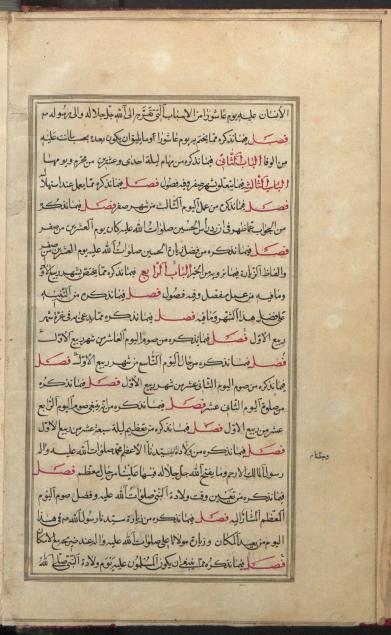 الانسان عليه يوم عاشورا من الاسباب التى تقرّبه الى الله جل جلاله والى رسوله ص
فصل فيما نذكره مما يختم به يوم عاشورا وما يليق ان يكون بعده بحسنات عليه
من الوفا الباب الثانى فيما نذكره من مهام ليلة احدى وعشرين من محرم ويومها
الباب الثالث فيما يتعلق بشهر صفر وفيه فصول فصل فيما نذكره مما يعمل عند استهلاله
فصل فيما نذكره من عمل اليوم الثالث من شهر صفر فصل فيما نذكره
من الجواب عما ظهر فى ان رد راس الحسين صلوات الله عليه كان يوم العشرين من صفر
فصل فيما نذكره من فضل زيارة الحسين صلوات الله عليه يوم العشرين من صفر
والفاظ الزيارة فيما نرويه من الخبر الباب الرابع فيما نذكره مما يختص بشهر ربيع الاول
وما فيه من عمل مفصل وفيه فصول فصل فيما نذكره من التنبيه
على فضل هذا الشهر وما فيه فصل فيما نذكره مما يدعى به فى غرة شهر
ربيع الاول فصل فيما نذكره من صوم اليوم العاشر من شهر ربيع الاول
فصل فيما نذكره من حال اليوم التاسع من شهر ربيع الاول فصل
فيما نذكره من صوم اليوم الثانى عشر من شهر ربيع الاول فصل فيما نذكره
من صلوة اليوم الثانى عشر فصل فيما نذكره من ترغيب فى صوم اليوم الرابع
عشر من ربيع الاول فصل فيما نذكره من تعظيم ليلة سبعة عشر من ربيع الاول
فصل فيما نذكره من ولادة سيدنا الاعظم محمد صلوات الله عليه واله
رسول المالك الارحم وما يفتح الله جل جلاله فيها علينا من حال معظم فصل
فيما نذكره من تعيين وقت ولادة النبى صلوات الله عليه وفضل صوم اليوم
المعظم المشار اليه فصل فيما نذكره من زيارة سيدنا رسول الله ص فى هذا
اليوم من بعيد المكان وزيارة مولانا على صلوات الله عليه واله عند ضريحه مع الامكان
فصل فيما نذكره مما ينبغى ان يكون المسلمون عليه يوم ولادة النبى صلى الله